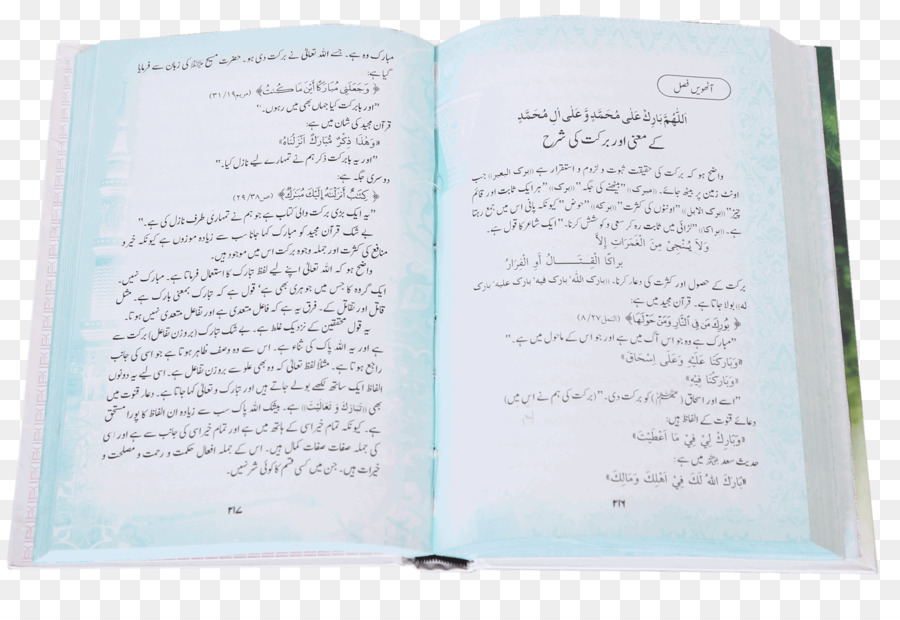 آٹھویں فصل
اَللّٰهُمَّ بَارِكْ عَلٰى مُحَمَّدٍ وَّ عَلٰى اٰلِ مُحَمَّدٍ
کے معنی اور برکت کی شرح
واضح ہو کہ برکت کی حقیقت ثبوت و لزوم و استقرار ہے «برك البعير» جب
اونٹ زمین پر بیٹھ جائے۔ «مبرك» ”بیٹھنے کی جگہ“ «برك» ”ہر ایک ثابت اور قائم
چیز“ «برك الابل» ”اونٹوں کی کثرت“ «بركه» ”حوض“ کیونکہ پانی اس میں جمع رہتا
ہے۔ «براكا» ”لڑائی میں ثابت رہ کر سعی و کوشش کرنا۔“ ایک شاعر کا قول ہے۔
وَلَا يُنْجِىْ مِنَ الْغَمَرَاتِ اِلاَّ
براكا الْقِتَــــالُ أَوِ الْفِرَارُ
برکت کے حصول اور کثرت کی دعا کرنا۔ «بارك الله، بارك فيه، بارك عليه، بارك
له» بولا جاتا ہے۔ قرآن مجید میں ہے:
﴿بُوْرِكَ مَنْ فِى النَّارِ وَمَنْ حَوْلَهَا﴾ (النمل ۲۷/۸)
”مبارک ہے وہ جو اس آگ میں ہے اور جو اس کے ماحول میں ہے۔“
«وَبَارَكْنَا عَلَيْهِ وَعَلٰى اِسْحَاقَ»
«وَبَارَكْنَا فِيْهِ»
”اسے اور اسحاق (علیہ السلام) کو برکت دی۔“ (برکت کی ہم نے اس میں)
دعائے قنوت کے الفاظ ہیں:
«وَبَارِكْ لِىْ فِىْ مَا اَعْطَيْتَ»
حدیث سعد رضی اللہ عنہ میں ہے:
«بَارَكَ اللهُ لَكَ فِىْ اَهْلِكَ وَمَالِكَ»
۲۱۶
مبارک وہ ہے۔ جسے اللہ تعالیٰ نے برکت دی ہو۔ حضرت مسیح علیہ السلام کی زبان سے فرمایا
گیا ہے:
﴿وَجَعَلَنِىْ مُبَارَكًا أَيْنَ مَا كُنْتُ﴾ (مریم ۱۹/۳۱)
”اور بابرکت کیا جہاں بھی میں رہوں۔“
قرآن مجید کی شان میں ہے:
«وَهٰذَا ذِكْرٌ مُّبَارَكٌ اَنْزَلْنَاهُ»
”اور یہ بابرکت ذکر ہم نے تمہارے لیے نازل کیا۔“
دوسری جگہ ہے:
﴿كِتٰبٌ أَنْزَلْنٰهُ إِلَيْكَ مُبٰرَكٌ﴾ (ص ۳۸/۲۹)
”یہ ایک بڑی برکت والی کتاب ہے جو ہم نے تمہاری طرف نازل کی ہے۔“
بے شک قرآن مجید کو مبارک کہا جانا سب سے زیادہ موزوں ہے کیونکہ خیر و
منافع کی کثرت اور جملہ وجوہ برکت اس میں موجود ہیں۔
واضح ہو کہ اللہ تعالیٰ اپنے لیے لفظ تبارک کا استعمال فرماتا ہے۔ مبارک نہیں۔
ایک گروہ کا جس میں جوہری بھی ہے‘ قول ہے کہ تبارک بمعنی بارک ہے۔ مثل
قاتل اور تقاتل کے۔ فرق یہ ہے کہ فاعل متعدی ہے اور تفاعل متعدی نہیں ہوتا۔
یہ قول محققین کے نزدیک غلط ہے۔ بے شک تبارک (بروزن تفاعل) برکت سے
ہے اور یہ اللہ پاک کی ثناء ہے۔ اس سے وہ وصف ظاہر ہوتا ہے جو اسی کی جانب
راجع ہوتا ہے۔ مثلاً لفظ تعالیٰ کہ وہ بھی علو سے بروزن تفاعل ہے۔ اسی لیے یہ دونوں
الفاظ ایک ساتھ لکھے بولے جاتے ہیں اور تبارک و تعالیٰ کہا جاتا ہے۔ دعاء قنوت میں
بھی «تَبَارَكْتَ وَ تَعَالَيْتَ» ہے۔ بیشک اللہ پاک سب سے زیادہ ان الفاظ کا پورا مستحق
ہے۔ کیونکہ تمام خیر اسی کے ہاتھ میں ہے اور تمام خیر اسی کی جانب سے ہے اور اسی
کی جملہ صفات صفات کمال ہیں۔ اس کے جملہ افعال حکمت و رحمت و مصلحت و
خیرات ہیں۔ جن میں کسی قسم کا کوئی شر نہیں۔
۲۱۷